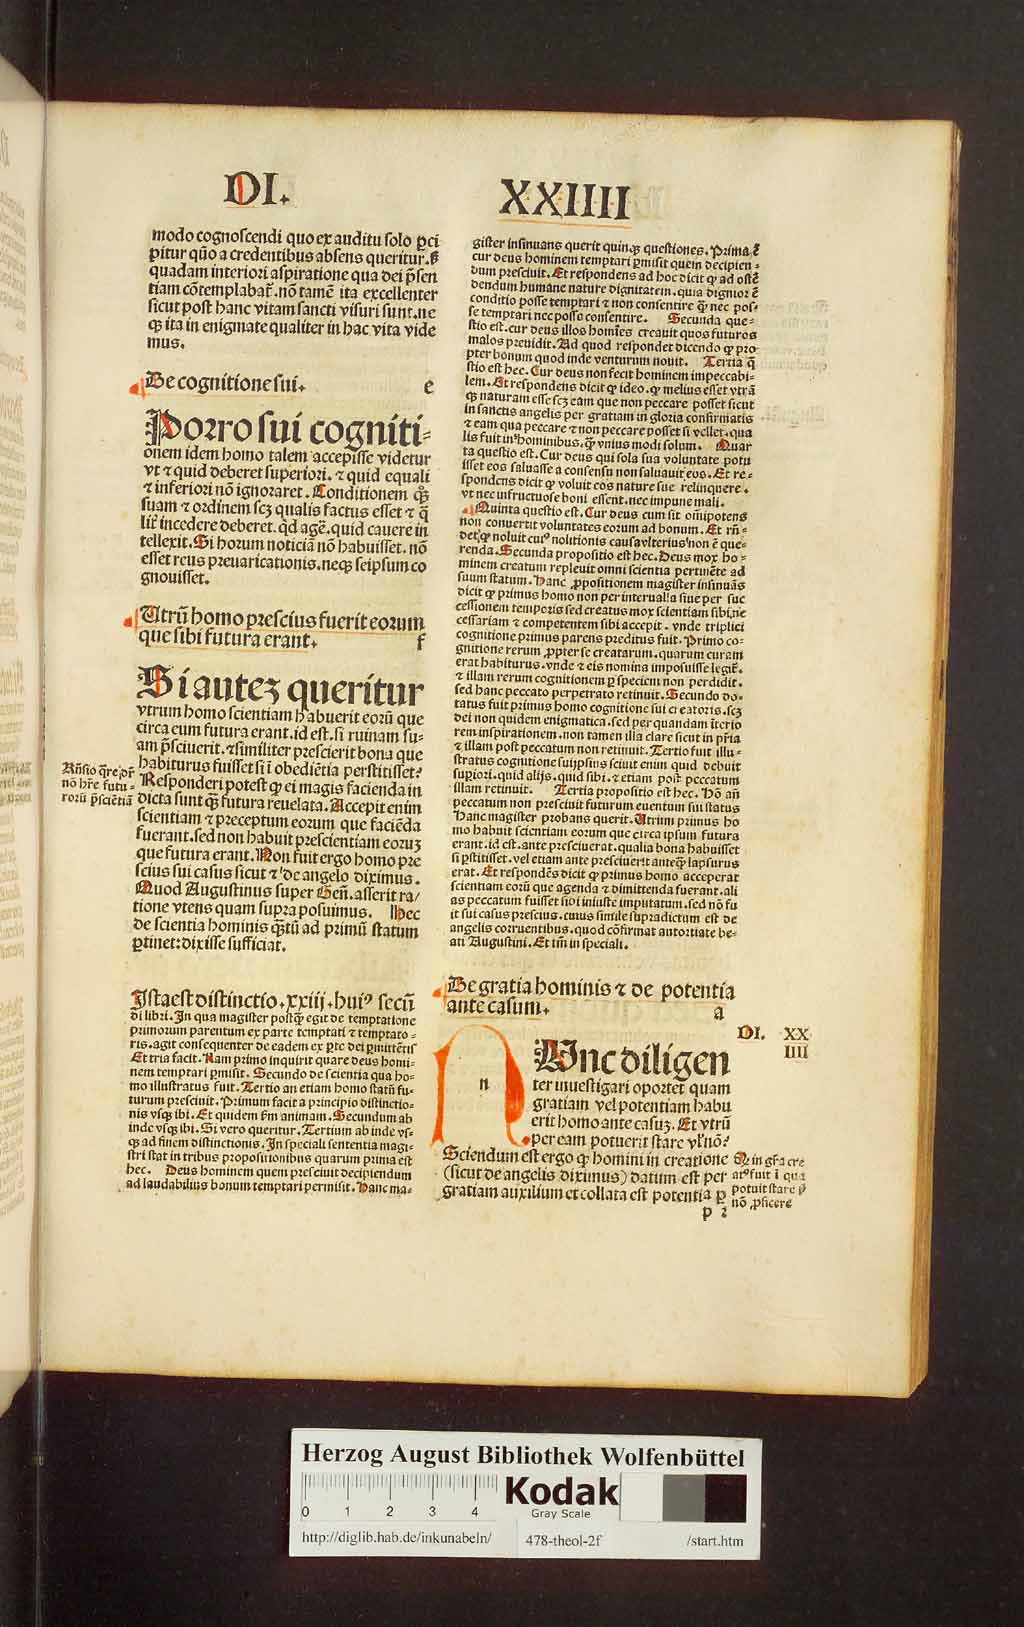 DI.
XXIIII
modo cognoscendi quo ex auditu solo ꝑci
ꝑitur qño a credentibus absens queritur. ß
quadam interiori aspiratione qua dei p̄sen
tiam cõtemplabat᷑. nõ tamē ita excellenter
sicut post hanc vitam sancti visuri sunt. ne
qꝫ ita in enigmate qualiter in hac vita vide
mus.
De cognitione sui.
e
Porro sui cogniti-
onem idem homo talem accepisse videtur
vt ⁊ quid deberet superiori. ⁊ quid equali
⁊ inferiori nõ ignoraret. Conditionem qꝫ
suam ⁊ ordinem scꝫ qualis factus esset ⁊ q̄
lit᷑ incedere deberet. qd agē. quid cauere in
tellexit. Si horum noticiā nõ habuisset. nõ
esset reus preuaricationis. neqꝫ seipsum co
gnouisset.
Utrū homo prescius fuerit eorum
que sibi futura erant.
f
Si autez queritur
vtrum homo scientiam habuerit eorū que
circa eum futura erant. id est. si ruinam su-
am p̄sciuerit. ⁊ similiter prescierit bona que
habiturus fuisset si ī obediētia perstitisset?
Rñsio q̄re pr̄
nõ hr̄e futu-
rorū p̄sciētiā
Responderi potest ꝙ ei magis facienda in
dicta sunt qꝫ futura reuelata. Accepit enim
scientiam ⁊ preceptum eorum que faciēda
fuerant. sed non habuit prescientiam eoruꝫ
que futura erant. Non fuit ergo homo pre
scius sui casus sicut ⁊ de angelo diximus.
Quod Augustinus super Geñ. asserit ra/
tione vtens quam supra posuimus. Hec
de scientia hominis qꝫtū ad primū statum
ꝑtinet: dixisse sufficiat.
Ista est distinctio. xxiii. huiꝰ secūn
di libri. In qua magister postqꝫ egit de temptatione
primorum parentum ex parte temptati ⁊ temptato-
ris. agit consequenter de eadem ex ꝑte dei ꝑmittētis
Et tria facit. Nam primo inquirit quare deus homi-
nem temptari ꝑmisit. Secundo de scientia qua ho-
mo illustratus fuit. Tertio an etiam homo statū fu-
turum presciuit. Primum facit a principio distinctio-
nis vsqꝫ ibi. Et quidem ẜm animam. Secundum ab
inde vsqꝫ ibi. Si vero queritur. Tertium ab inde vs-
qꝫ ad finem distinctionis. In speciali sententia magi-
stri stat in tribus propositionibus quarum prima est
hec. Deus hominem quem presciuit decipiendum
ad laudabilius bonum temptari permisit. Hanc ma-
gister insinuans querit quinqꝫ questiones. Prima ē
cur deus hominem temptari ꝑmisit quem decipien-
dum presciuit. Et respondens ad hoc dicit ꝙ ad ostē
dendum humane nature dignitatem. quia dignior ē
conditio posse temptari ⁊ non consentire qꝫ nec pos-
se temptari nec posse consentire. Secunda que-
stio est. cur deus illos homīes creauit quos futuros
malos preuidit. Ad quod respondet dicendo ꝙ pro-
pter bonum quod inde venturum nouit. Tertia q̄
stio est hec. Cur deus non fecit hominem impeccabi-
lem. Et respondens dicit ꝙ ideo. ꝙ melius esset vtrā
qꝫ naturam esse scꝫ eam que non peccare posset sicut
in sanctis angelis per gratiam in gloria confirmatis
⁊ eam qua peccare ⁊ non peccare posset si vellet. qua
lis fuit in hominibus. qꝫ vnius modi solum. Quar
ta questio est. Cur deus qui sola sua voluntate potu
isset eos saluasse a consensu non saluauit eos. Et re-
spondens dicit ꝙ voluit eos nature sue relinquere.
vt nec infructuose boni essent. nec impune mali.
Quinta questio est. Cur deus cum sit oīpotens
non conuertit voluntates eorum ad bonum. Et rñ-
det ꝙ noluit cuiꝰ nolitionis causa vlterius non ē que-
renda. Secunda propositio est hec. Deus mox ho-
minem creatum repleuit omni scientia pertinēte ad
suum statum. Hanc ꝓpositionem magister insinuās
dicit ꝙ primus homo non per interualla siue per suc
cessionem temporis sed creatus mox scientiam sibi ne
cessariam ⁊ competentem sibi accepit. vnde triplici
cognitione primus parens preditus fuit. Primo co-
gnitione rerum ꝓpter se creatarum. quarum curam
erat habiturus. vnde ⁊ eis nomina imposuisse legit᷑.
⁊ illam rerum cognitionem ꝑ speciem non perdidit.
sed hanc peccato perpetrato retinuit. Secundo do-
tatus fuit primus homo cognitione sui creatoris. scꝫ
dei non quidem enigmatica. sed per quandam īterio
rem inspirationem. non tamen ita clare sicut in pr̄ia
⁊ illam post peccatum non retinuit. Tertio fuit illu-
stratus cognitione suiipsius sciuit enim quid debuit
suꝑiori. quid alijs. quid sibi. ⁊ etiam post peccatum
illam retinuit. Tertia propositio est hec. Hõ añ
peccatum non presciuit futurum euentum sui status
Hanc magister probans querit. Utrum primus ho
mo habuit scientiam eorum que circa ipsum futura
erant. id est. ante presciuerat. qualia bona habuisset
si ꝑstitisset. vel etiam ante presciuerit anteqꝫ lapsurus
erat. Et respondēs dicit ꝙ primus homo acceperat
scientiam eorū que agenda ⁊ dimittenda fuerant. ali
as peccatum fuisset sibi iniuste imputatum. sed nõ fu
it sui casus prescius. cuius simile supradictum est de
angelis corruentibus. quod cõfirmat autortate be-
ati Augustini. Et tm̄ in speciali.
De gratia hominis ⁊ de potentia
ante casum.
a
DI. XX
IIII
n
NUnc diligen
ter inuestigari oportet quam
gratiam vel potentiam habu
erit homo ante casuꝫ. Et vtrū
per eam potuerit stare vl' nõ?
Sciendum est ergo ꝙ homini in creatione
(sicut de angelis diximus) datum est per
gratiam auxilium et collata est potentia ꝑ
Q in gr̄a cre
atꝰ fuit ī qua
potuit stare ꝫ
nõ ꝓficere
p 2
Herzog August Bibliothek Wolfenbüttel
0 1 2 3 4
Kodak
Gray Scale
http://diglib.hab.de/inkunabeln/ 478-theol-2f /start.htm